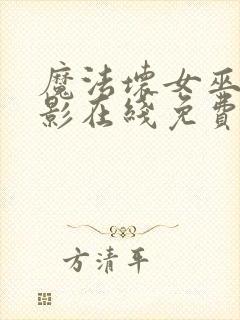 魔法壞女巫
影在綫免費
方清平